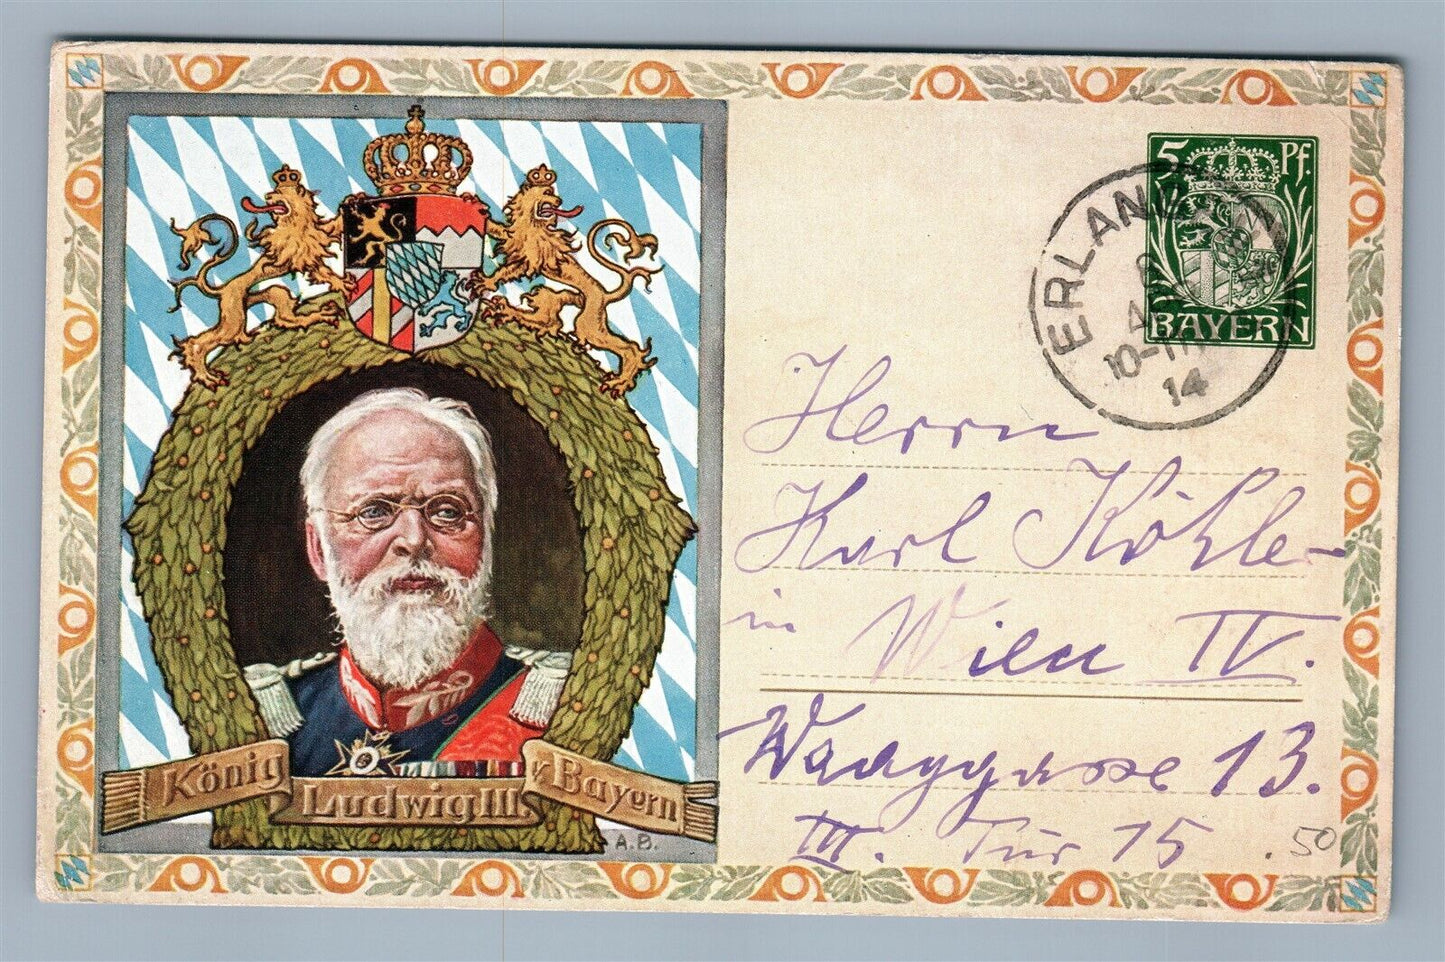 König
Ludwig III.
v. Bayern
A.B.
5 Pf.
BAYERN
ERLANGEN
10-11
14
Herrn
Karl Köhler
in Wien IV.
Waaggasse 13.
III. Tür 15
.50